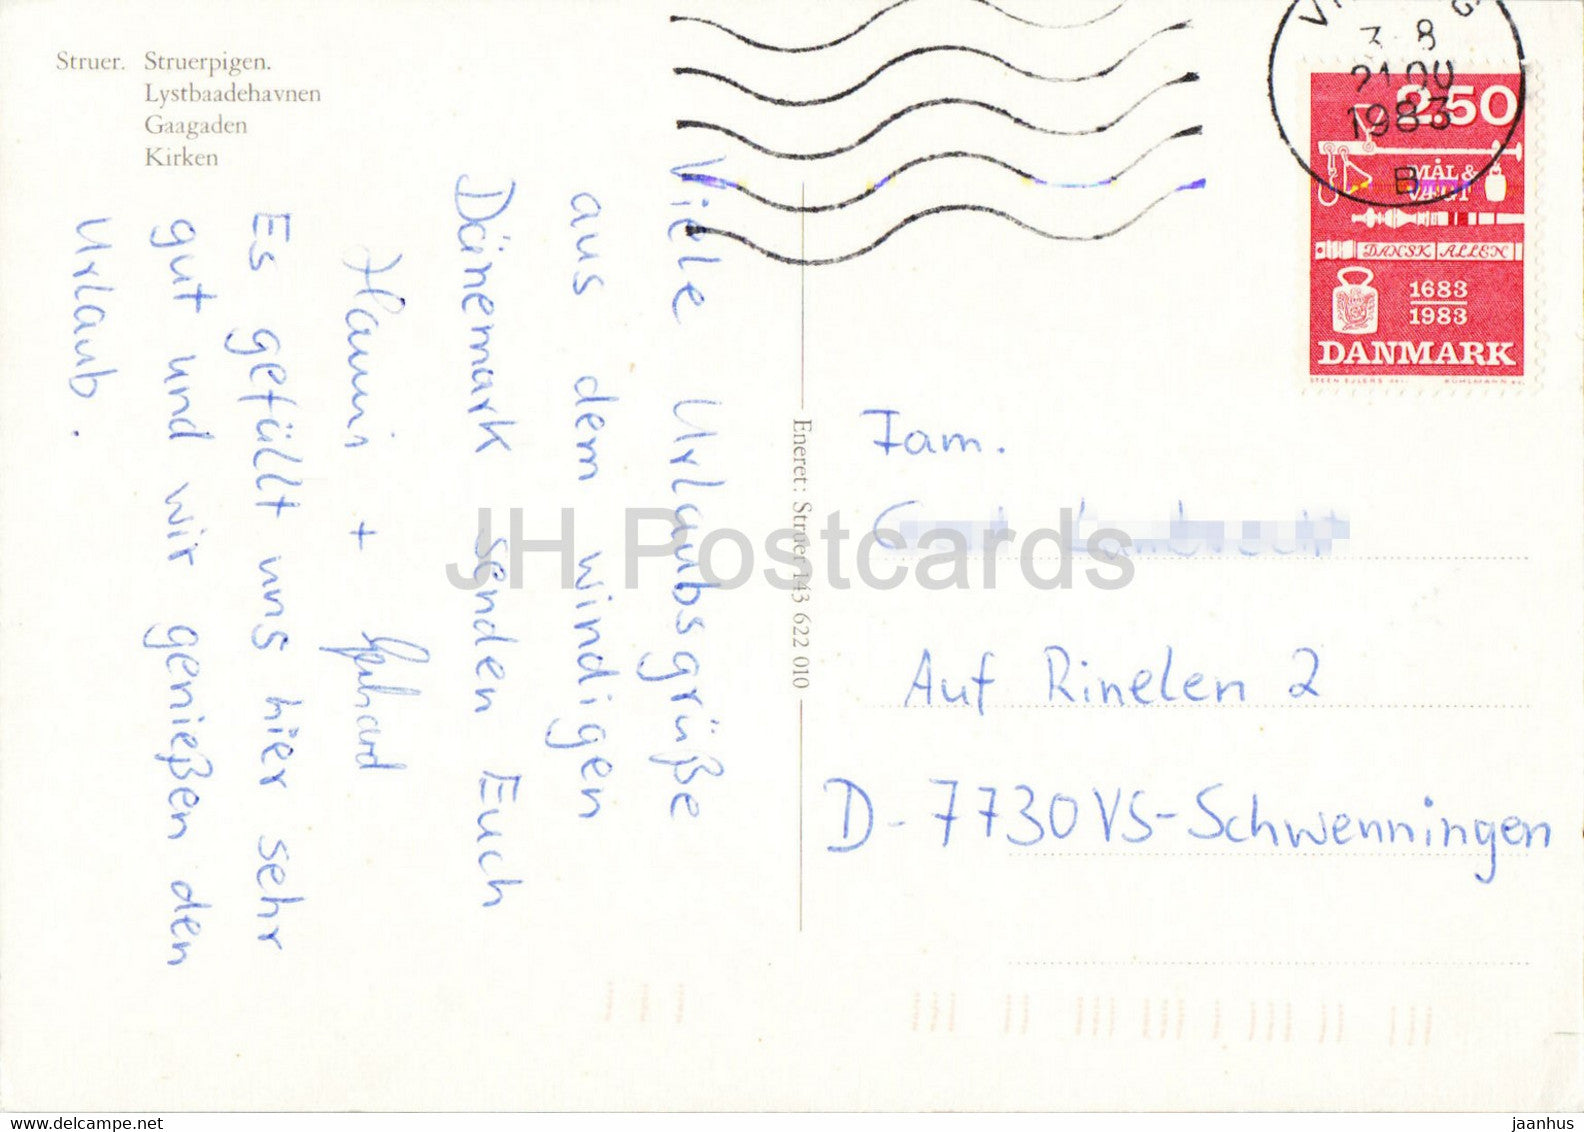 Struer. Struerpigen.
Lystbaadehavnen
Gaagaden
Kirken
Viele Urlaubsgrüße
aus dem windigen
Dänemark senden Euch
Hanni + Gerhard
Es gefällt uns hier sehr
gut und wir genießen den
Urlaub.
Eneret: Struer 143 622 010
3 8
21.00
1983
B
250
MÅL &
VÆGT
DANSK ALLEN
1683
1983
DANMARK
Fam.
Auf Rinelen 2
D-7730 VS-Schwenningen
JH Postcards
www.delcampe.net
jaanhus